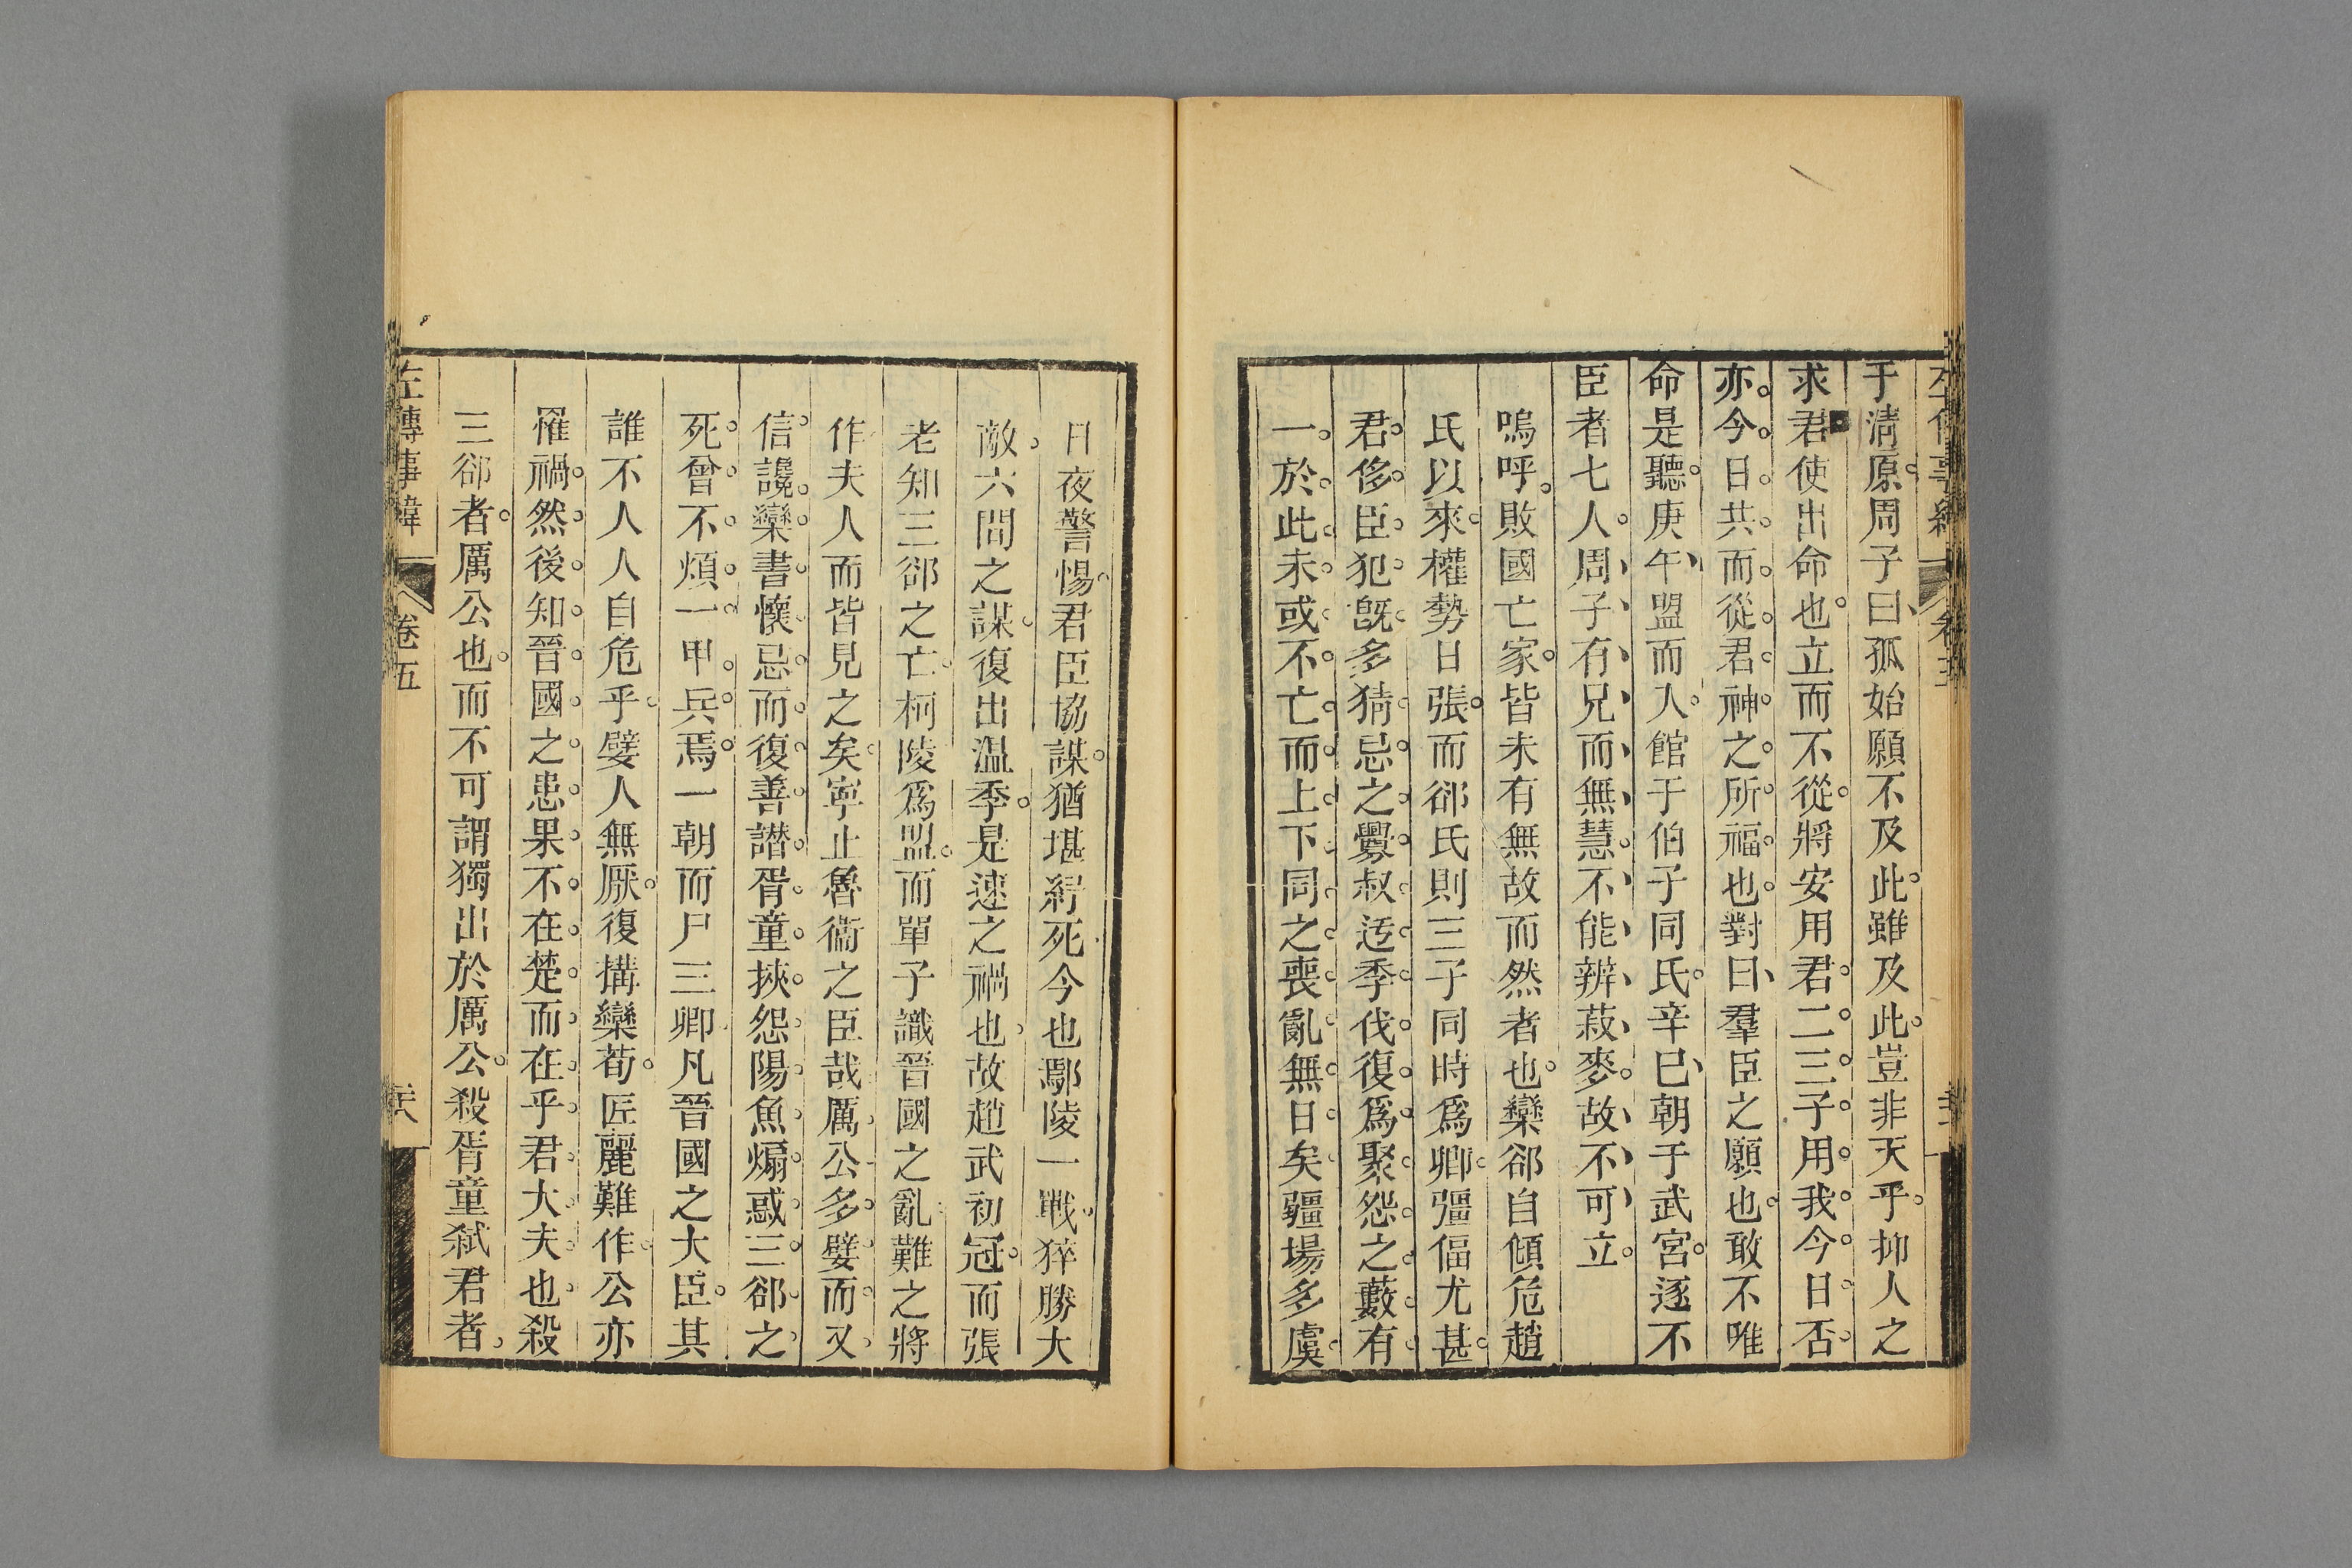 于淸原周子曰孤始願不及此雖及此豈非天乎抑人之
求君使出命也立而不從將安用君二三子用我今日否
亦今日共而從君神之所福也對曰羣臣之願也敢不唯
命是聽庚午盟而入館于伯子同氏辛巳朝于武宮逐不
臣者七人周子有兄而無慧不能辨菽麥故不可立
嗚呼敗國亡家皆未有無故而然者也欒郤自傾危趙
氏以來權勢日張而郤氏則三子同時爲卿彊偪尤甚
君侈臣犯旣多猜忌之釁叔迋季伐復爲聚怨之藪有
一於此未或不亡而上下同之喪亂無日矣疆場多虞
日夜警惕君臣協謀猶堪紓死今也鄢陵一戰猝勝大
敵六間之謀復出溫季是速之禍也故趙武初冠而張
老知三郤之亡柯陵爲盟而單子識晉國之亂難之將
作夫人而皆見之矣寧止魯衞之臣哉厲公多嬖而又
信讒欒書懷忌而復善譖胥童挾怨陽魚煽惑三郤之
死曾不煩一甲兵焉一朝而尸三卿凡晉國之大臣其
誰不人人自危乎嬖人無厭復搆欒荀匠麗難作公亦
罹禍然後知晉國之患果不在楚而在乎君大夫也殺
三郤者厲公也而不可謂獨出於厲公殺胥童弑君者
左傳事緯
卷五